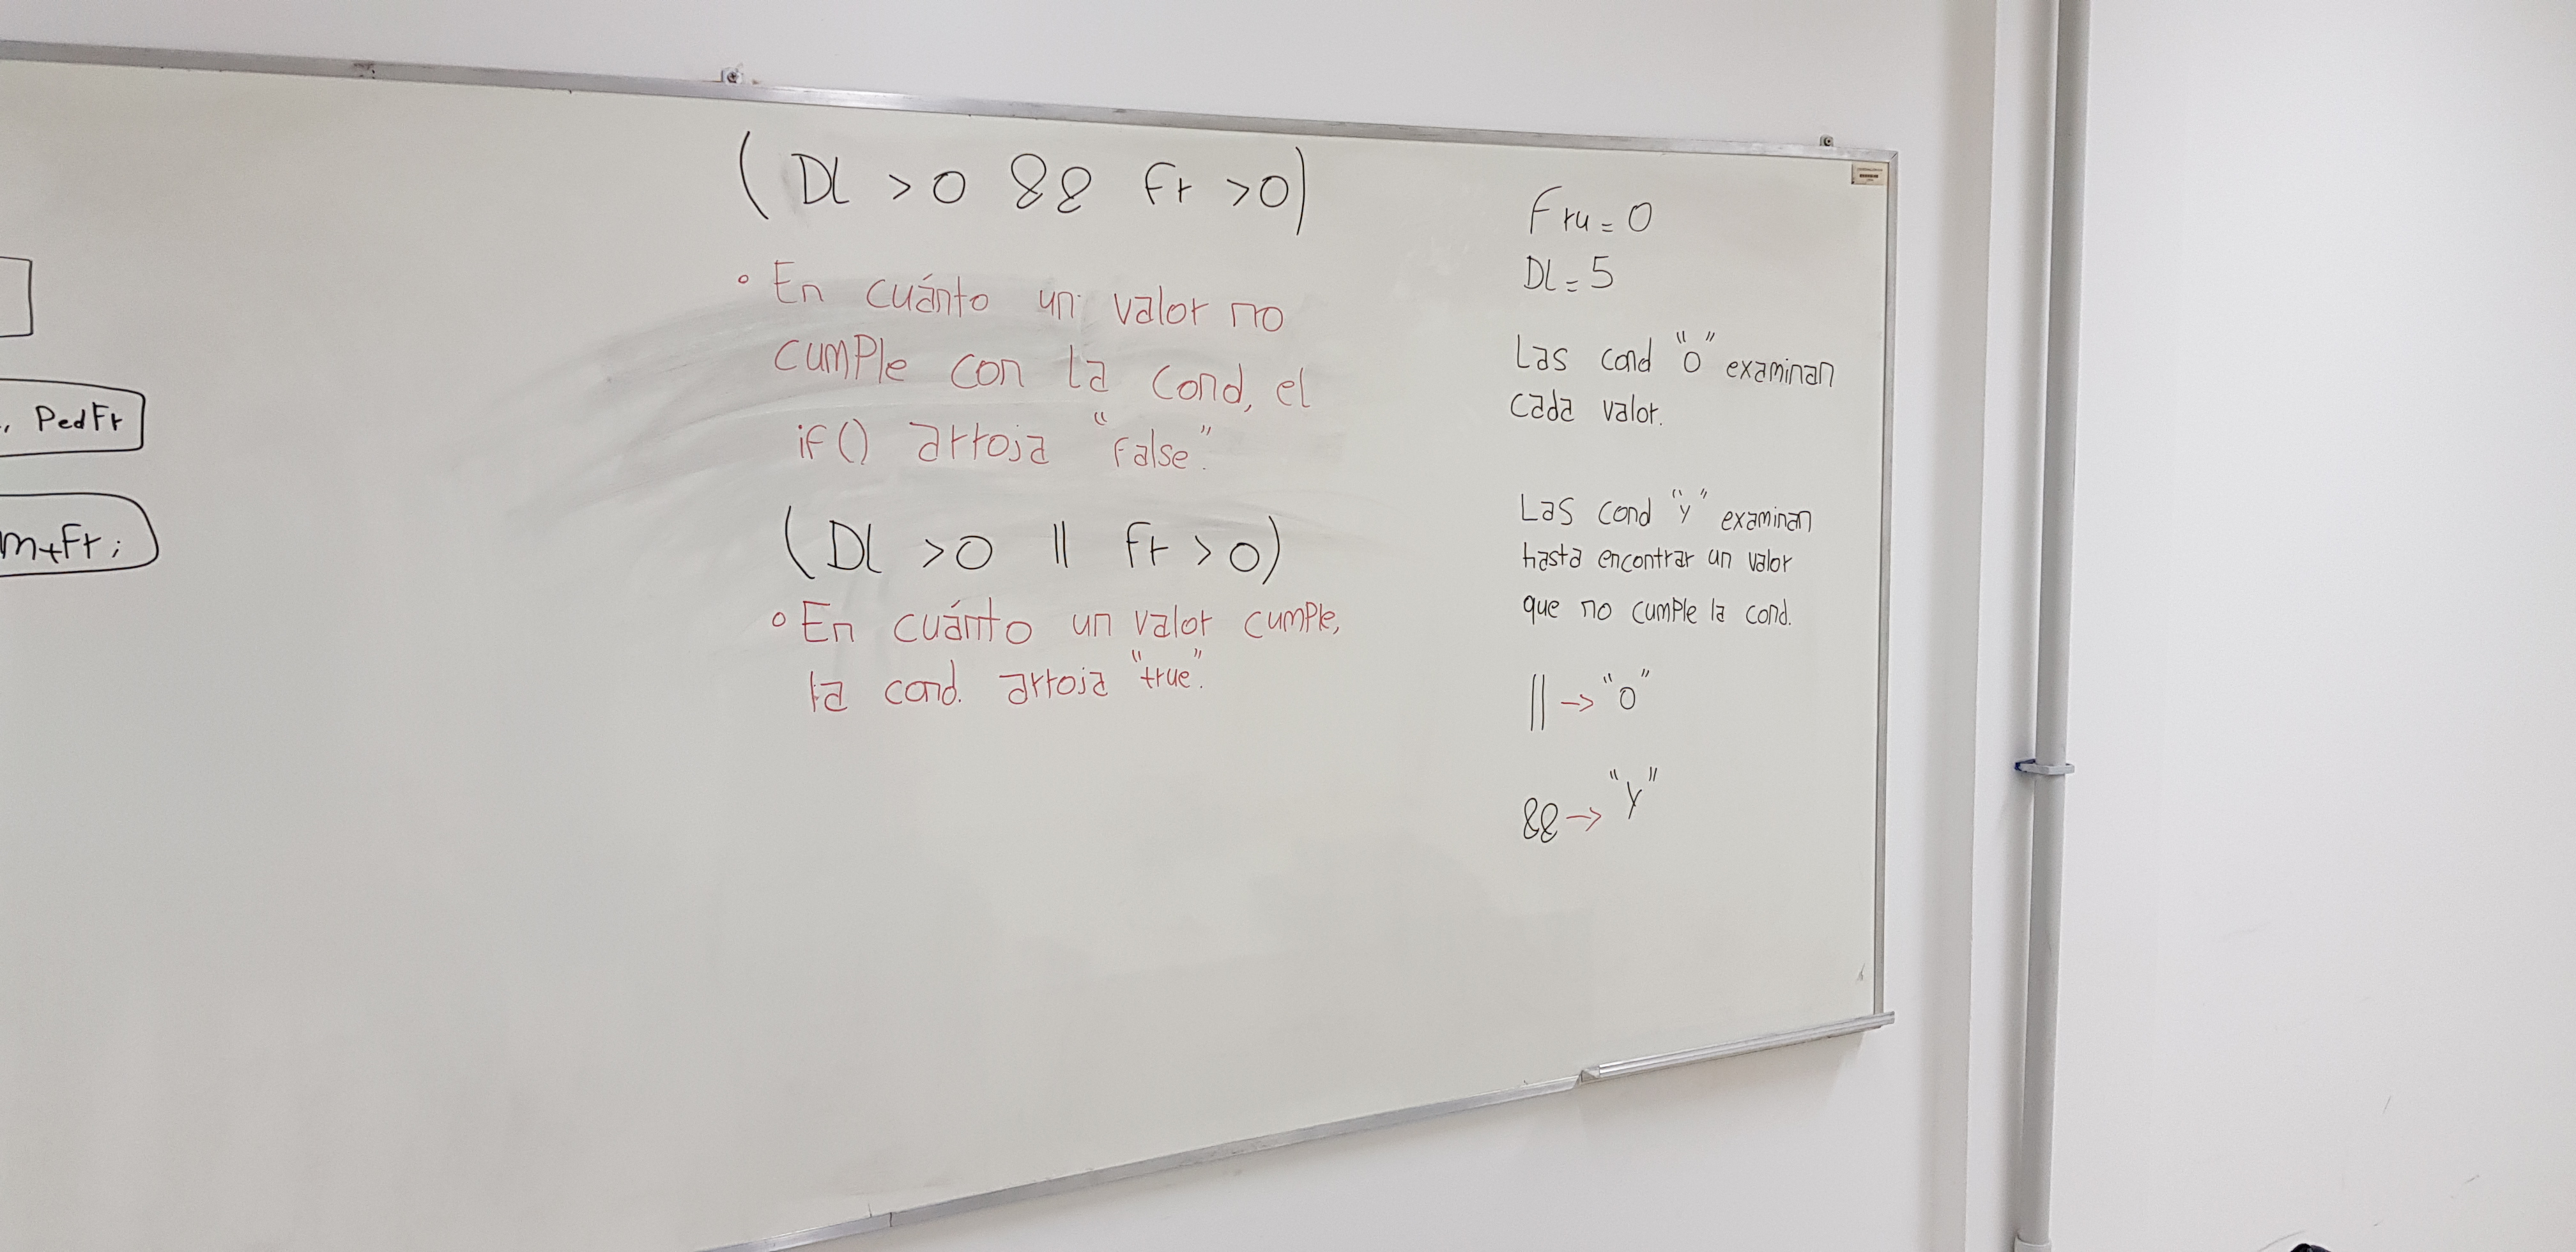 , PedFr
m+Fr;
(DL >0 && Fr >0)
° En cuánto un valor no
cumPle con la cond, el
if() arroja "false".
(DL >0 || Fr >0)
° En cuánto un valor cumPle,
la cond. arroja "true".
Fru = 0
DL = 5
Las cond "o" examinan
cada valor.
Las cond "y" examinan
hasta encontrar un valor
que no cumPle la cond.
|| → "o"
&& → "y"